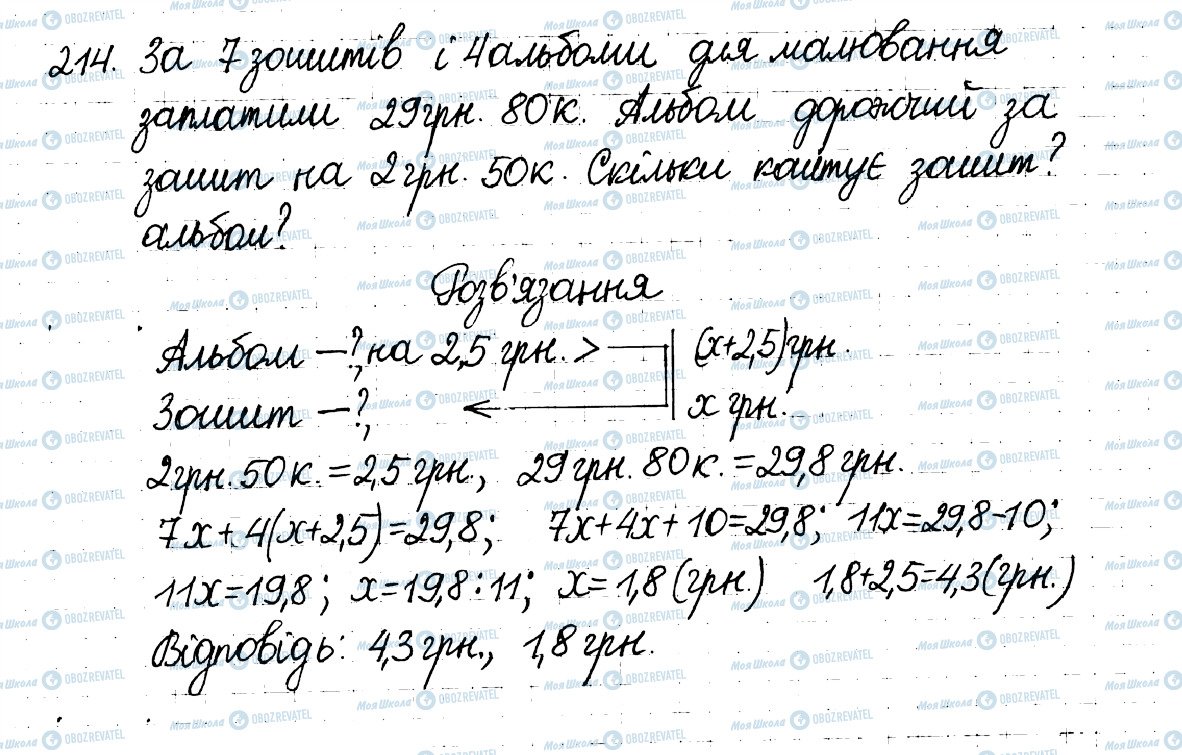 214. За 7 зошитів і 4 альбоми для малювання
заплатили 29 грн. 80 к. Альбом дорожчий за
зошит на 2 грн. 50 к. Скільки коштує зошит?
альбом?
Розв'язання
Альбом – ?, на 2,5 грн. > (x+2,5) грн.
Зошит – ?, x грн.
2 грн. 50 к. = 2,5 грн., 29 грн. 80 к. = 29,8 грн.
7x + 4(x+2,5) = 29,8; 7x + 4x + 10 = 29,8; 11x = 29,8 - 10;
11x = 19,8; x = 19,8 : 11; x = 1,8 (грн.) 1,8 + 2,5 = 4,3 (грн.)
Відповідь: 4,3 грн., 1,8 грн.
МояШкола OBOZREVATEL